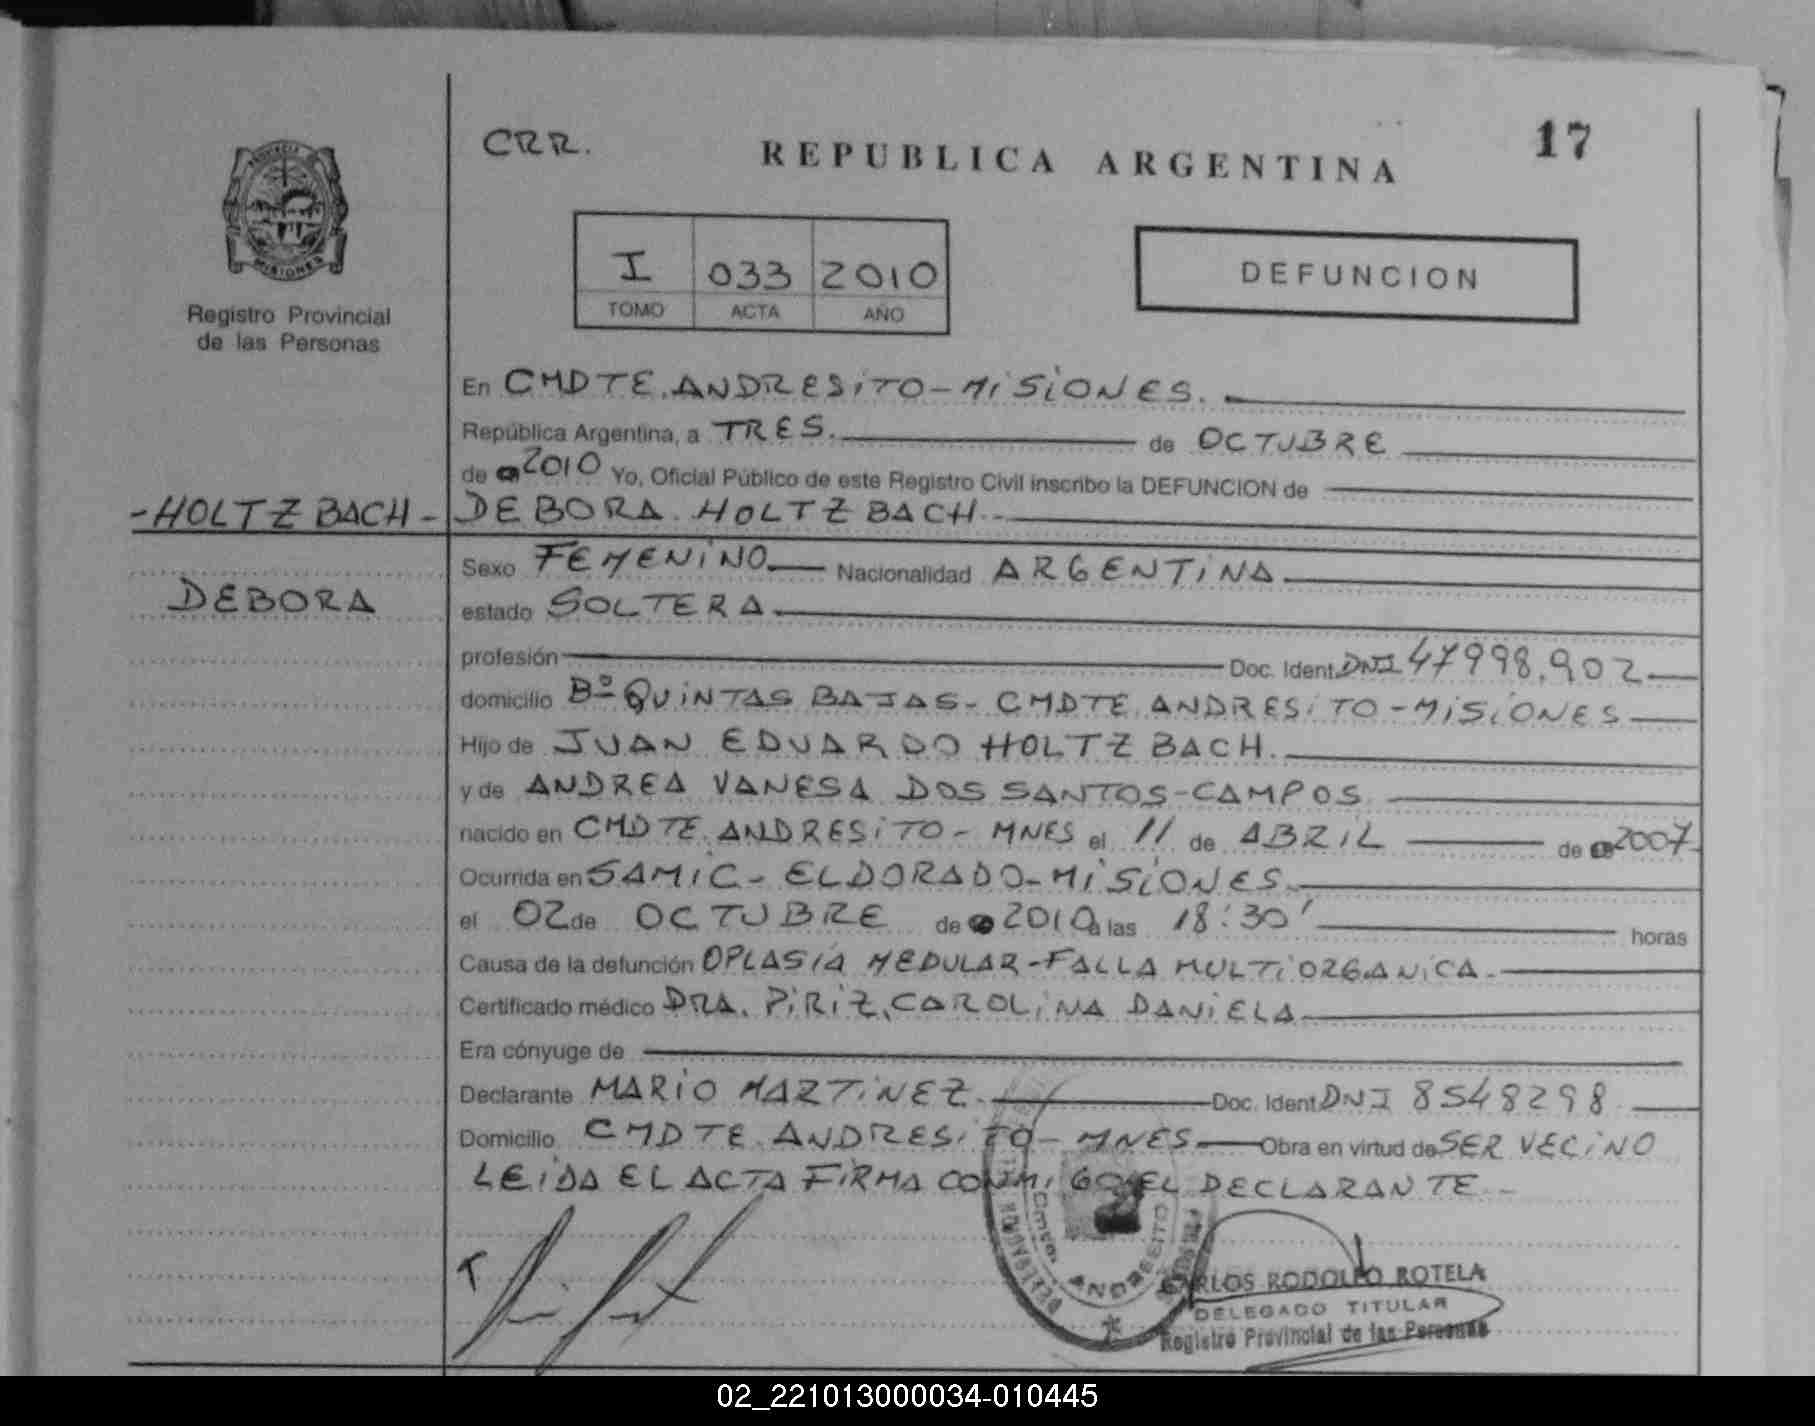 CRR.
REPUBLICA ARGENTINA
17
PROVINCIA DE
MISIONES
Registro Provincial
de las Personas
I 033 2010
TOMO ACTA AÑO
DEFUNCION
En CMDTE. ANDRESITO - MISIONES.
República Argentina, a TRES. de OCTUBRE
de 2010 Yo, Oficial Público de este Registro Civil inscribo la DEFUNCION de
-HOLTZBACH- DEBORA HOLTZBACH.-
DEBORA
Sexo FEMENINO Nacionalidad ARGENTINA
estado SOLTERA
profesión Doc. Ident. DNI 47998.902
domicilio Bº QUINTAS BAJAS - CMDTE. ANDRESITO - MISIONES
Hijo de JUAN EDUARDO HOLTZBACH.
y de ANDREA VANESA DOS SANTOS-CAMPOS
nacido en CMDTE. ANDRESITO - MNES el 11 de ABRIL de 2007
Ocurrida en SAMIC - ELDORADO - MISIONES
el 02 de OCTUBRE de 2010 a las 18:30' horas
Causa de la defunción OPLASIA MEDULAR - FALLA MULTIORGANICA.
Certificado médico DRA. PIRIZ, CAROLINA DANIELA
Era cónyuge de
Declarante MARIO MARTINEZ Doc. Ident. DNI 8548298
Domicilio CMDTE. ANDRESITO - MNES Obra en virtud de SER VECINO
LEIDA EL ACTA FIRMA CONMIGO EL DECLARANTE.-
Cmte. ANDRESITO
CARLOS RODOLFO ROTELA
DELEGADO TITULAR
Registro Provincial de las Personas
02_221013000034-010445